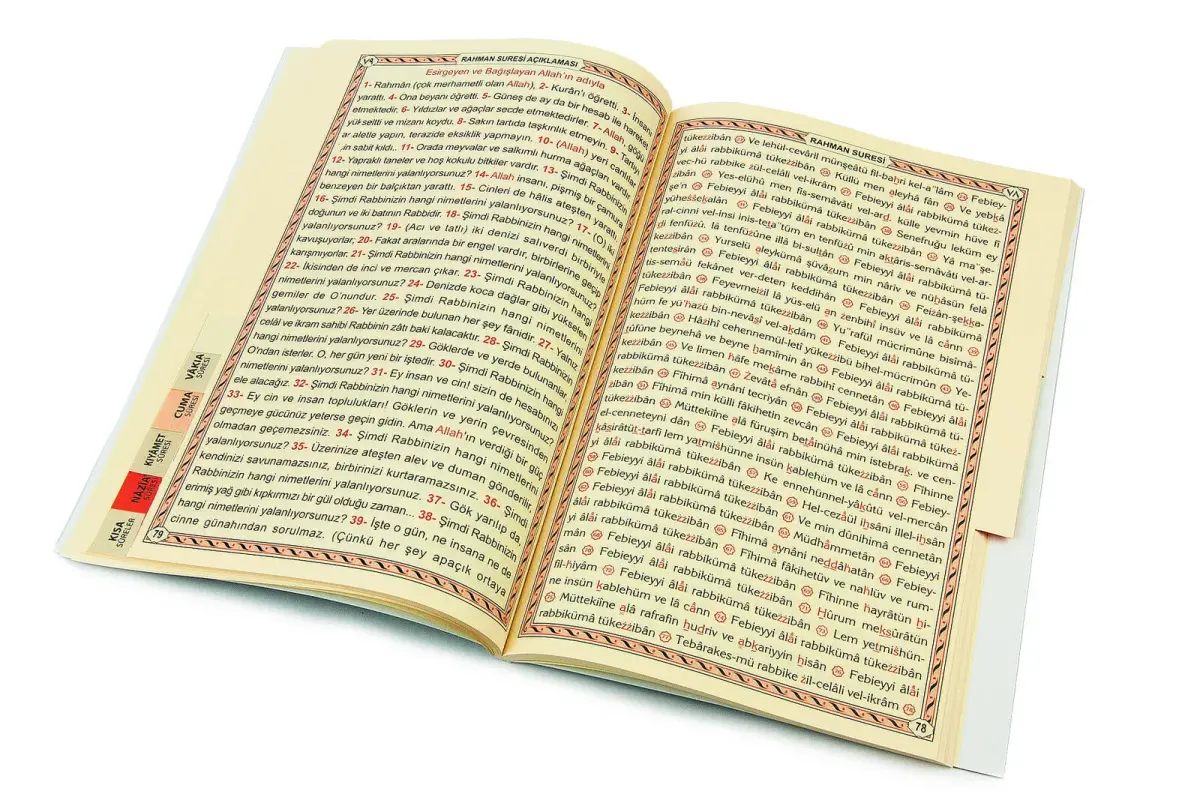 ٧٩
RAHMAN SURESİ AÇIKLAMASI
Esirgeyen ve Bağışlayan Allah'ın adıyla
1- Rahmân (çok merhametli olan Allah), 2- Kurân'ı öğretti. 3- İnsanı
yarattı. 4- Ona beyanı öğretti. 5- Güneş de ay da bir hesab ile hareket
etmektedir. 6- Yıldızlar ve ağaçlar secde etmektedirler. 7- Allah, göğü
yükseltti ve mizanı koydu. 8- Sakın tartıda taşkınlık etmeyin. 9- Tartıyı
aletle yapın, terazide eksiklik yapmayın. 10- (Allah) yeri canlılar
için sabit kıldı.. 11- Orada meyvalar ve salkımlı hurma ağaçları vardır.
12- Yapraklı taneler ve hoş kokulu bitkiler vardır. 13- Şimdi Rabbinizin
hangi nimetlerini yalanlıyorsunuz? 14- Allah insanı, pişmiş bir çamura
benzeyen bir balçıktan yarattı. 15- Cinleri de hâlis ateşten yarattı.
16- Şimdi Rabbinizin hangi nimetlerini yalanlıyorsunuz? 17- (O) iki
doğunun ve iki batının Rabbidir. 18- Şimdi Rabbinizin hangi nimetlerini
yalanlıyorsunuz? 19- (Acı ve tatlı) iki denizi salıverdi, birbiriyle
kavuşuyorlar, 20- Fakat aralarında bir engel vardır, birbirlerine geçip
karışmıyorlar. 21- Şimdi Rabbinizin hangi nimetlerini yalanlıyorsunuz?
22- İkisinden de inci ve mercan çıkar. 23- Şimdi Rabbinizin hangi
nimetlerini yalanlıyorsunuz? 24- Denizde koca dağlar gibi yükselen
gemiler de O'nundur. 25- Şimdi Rabbinizin hangi nimetlerini
yalanlıyorsunuz? 26- Yer üzerinde bulunan her şey fânidir. 27- Yalnız
celâl ve ikram sahibi Rabbinin zâtı baki kalacaktır. 28- Şimdi Rabbinizin
hangi nimetlerini yalanlıyorsunuz? 29- Göklerde ve yerde bulunanlar
O'ndan isterler. O, her gün yeni bir iştedir. 30- Şimdi Rabbinizin hangi
nimetlerini yalanlıyorsunuz? 31- Ey insan ve cin! sizin de hesabınızı
ele alacağız. 32- Şimdi Rabbinizin hangi nimetlerini yalanlıyorsunuz?
33- Ey cin ve insan toplulukları! Göklerin ve yerin çevresinden
geçmeye gücünüz yeterse geçin gidin. Ama Allah'ın verdiği bir güç
olmadan geçemezsiniz. 34- Şimdi Rabbinizin hangi nimetlerini
yalanlıyorsunuz? 35- Üzerinize ateşten alev ve duman gönderilir,
kendinizi savunamazsınız, birbirinizi kurtaramazsınız. 36- Şimdi
Rabbinizin hangi nimetlerini yalanlıyorsunuz. 37- Gök yarılıp da,
erimiş yağ gibi kıpkırmızı bir gül olduğu zaman... 38- Şimdi Rabbinizin
hangi nimetlerini yalanlıyorsunuz? 39- İşte o gün, ne insana ne de
cinne günahından sorulmaz. (Çünkü her şey apaçık ortaya
79
VÂKIA
SÛRESİ
CUMA
SÛRESİ
KIYÂMET
SÛRESİ
NÂZİA
SÛRESİ
KISA
SÛRELER
RAHMAN SURESİ
٧٨
tükezzibân 23 Ve lehül-cevâril münşeâtü fil-bahri kel-a'lâm 24 Febiey-
yi âlâi rabbikümâ tükezzibân 25 Küllü men aleyhâ fân 26 Ve yebkâ
vec-hü rabbike zül-celâli vel-ikrâm 27 Febieyyi âlâi rabbikümâ tükez-
zibân 28 Yes-elühû men fis-semâvâti vel-ard. Külle yevmin hüve fî
şe'n 29 Febieyyi âlâi rabbikümâ tükezzibân 30 Senefruğu leküm ey
yühessekalân 31 Febieyyi âlâi rabbikümâ tükezzibân 32 Yâ ma'şe-
ral-cinni vel-insi inis-teta'tüm en tenfüzû min aktâris-semâvâti vel-ar-
di fenfüzû. lâ tenfüzûne illâ bi-sultân 33 Febieyyi âlâi rabbikümâ tü-
kezzibân 34 Yurselü aleykümâ şüvâzum min nâriv ve nühâsün felâ
tentesirân 35 Febieyyi âlâi rabbikümâ tükezzibân 36 Feizân-şekka-
tis-semâü fekânet ver-deten keddihân 37 Febieyyi âlâi rabbikümâ
tükezzibân 38 Feyevmeizil lâ yüs-elü an zenbihî insüv ve lâ cânn 39
Febieyyi âlâi rabbikümâ tükezzibân 40 Yu'raful mücrimûne bisîmâ-
hüm fe yü'hazü bin-nevâsî vel-akdâm 41 Febieyyi âlâi rabbikümâ tü-
kezzibân 42 Hâzihî cehennemül-letî yükezzibü bihel-mücrimûn 43 Ye-
tûfûne beynehâ ve beyne hamîmin ân 44 Febieyyi âlâi rabbikümâ tü-
kezzibân 45 Ve limen hâfe mekâme rabbihî cennetân 46 Febieyyi âlâi
rabbikümâ tükezzibân 47 Zevâtâ efnân 48 Febieyyi âlâi rabbikümâ tü-
kezzibân 49 Fîhimâ aynâni tecriyân 50 Febieyyi âlâi rabbikümâ tükez-
zibân 51 Fîhimâ min külli fâkihetin zevcân 52 Febieyyi âlâi rabbikümâ
tükezzibân 53 Müttekiîne alâ furuşim betâinühâ min istebrak. ve cen-
el-cenneteyni dân 54 Febieyyi âlâi rabbikümâ tükezzibân 55 Fîhinne
kâsirâtüt-tarfi lem yatmishünne insün kablehüm ve lâ cânn 56 Febiey-
yi âlâi rabbikümâ tükezzibân 57 Ke ennehünnel-yâkûtü vel-mercân
58 Febieyyi âlâi rabbikümâ tükezzibân 59 Hel-cezâül ihsâni illel-ihsân
60 Febieyyi âlâi rabbikümâ tükezzibân 61 Ve min dûnihimâ cennetân
62 Febieyyi âlâi rabbikümâ tükezzibân 63 Müdhâmmetân 64 Febiey-
yi âlâi rabbikümâ tükezzibân 65 Fîhimâ aynâni neddâhatân 66 Febieyyi
âlâi rabbikümâ tükezzibân 67 Fîhimâ fâkihetüv ve nahlüv ve rum-
mân 68 Febieyyi âlâi rabbikümâ tükezzibân 69 Fîhinne hayrâtün hi-
sân 70 Febieyyi âlâi rabbikümâ tükezzibân 71 Hûrum meksûrâtün
fil-hiyâm 72 Febieyyi âlâi rabbikümâ tükezzibân 73 Lem yetmishün-
ne insün kablehüm ve lâ cânn 74 Febieyyi âlâi rabbikümâ tükezzibân
75 Müttekiîne alâ rafrafin hudriv ve abkariyyin hisân 76 Febieyyi âlâi
rabbikümâ tükezzibân 77 Tebârakes-mü rabbike zil-celâli vel-ikrâm 78
78